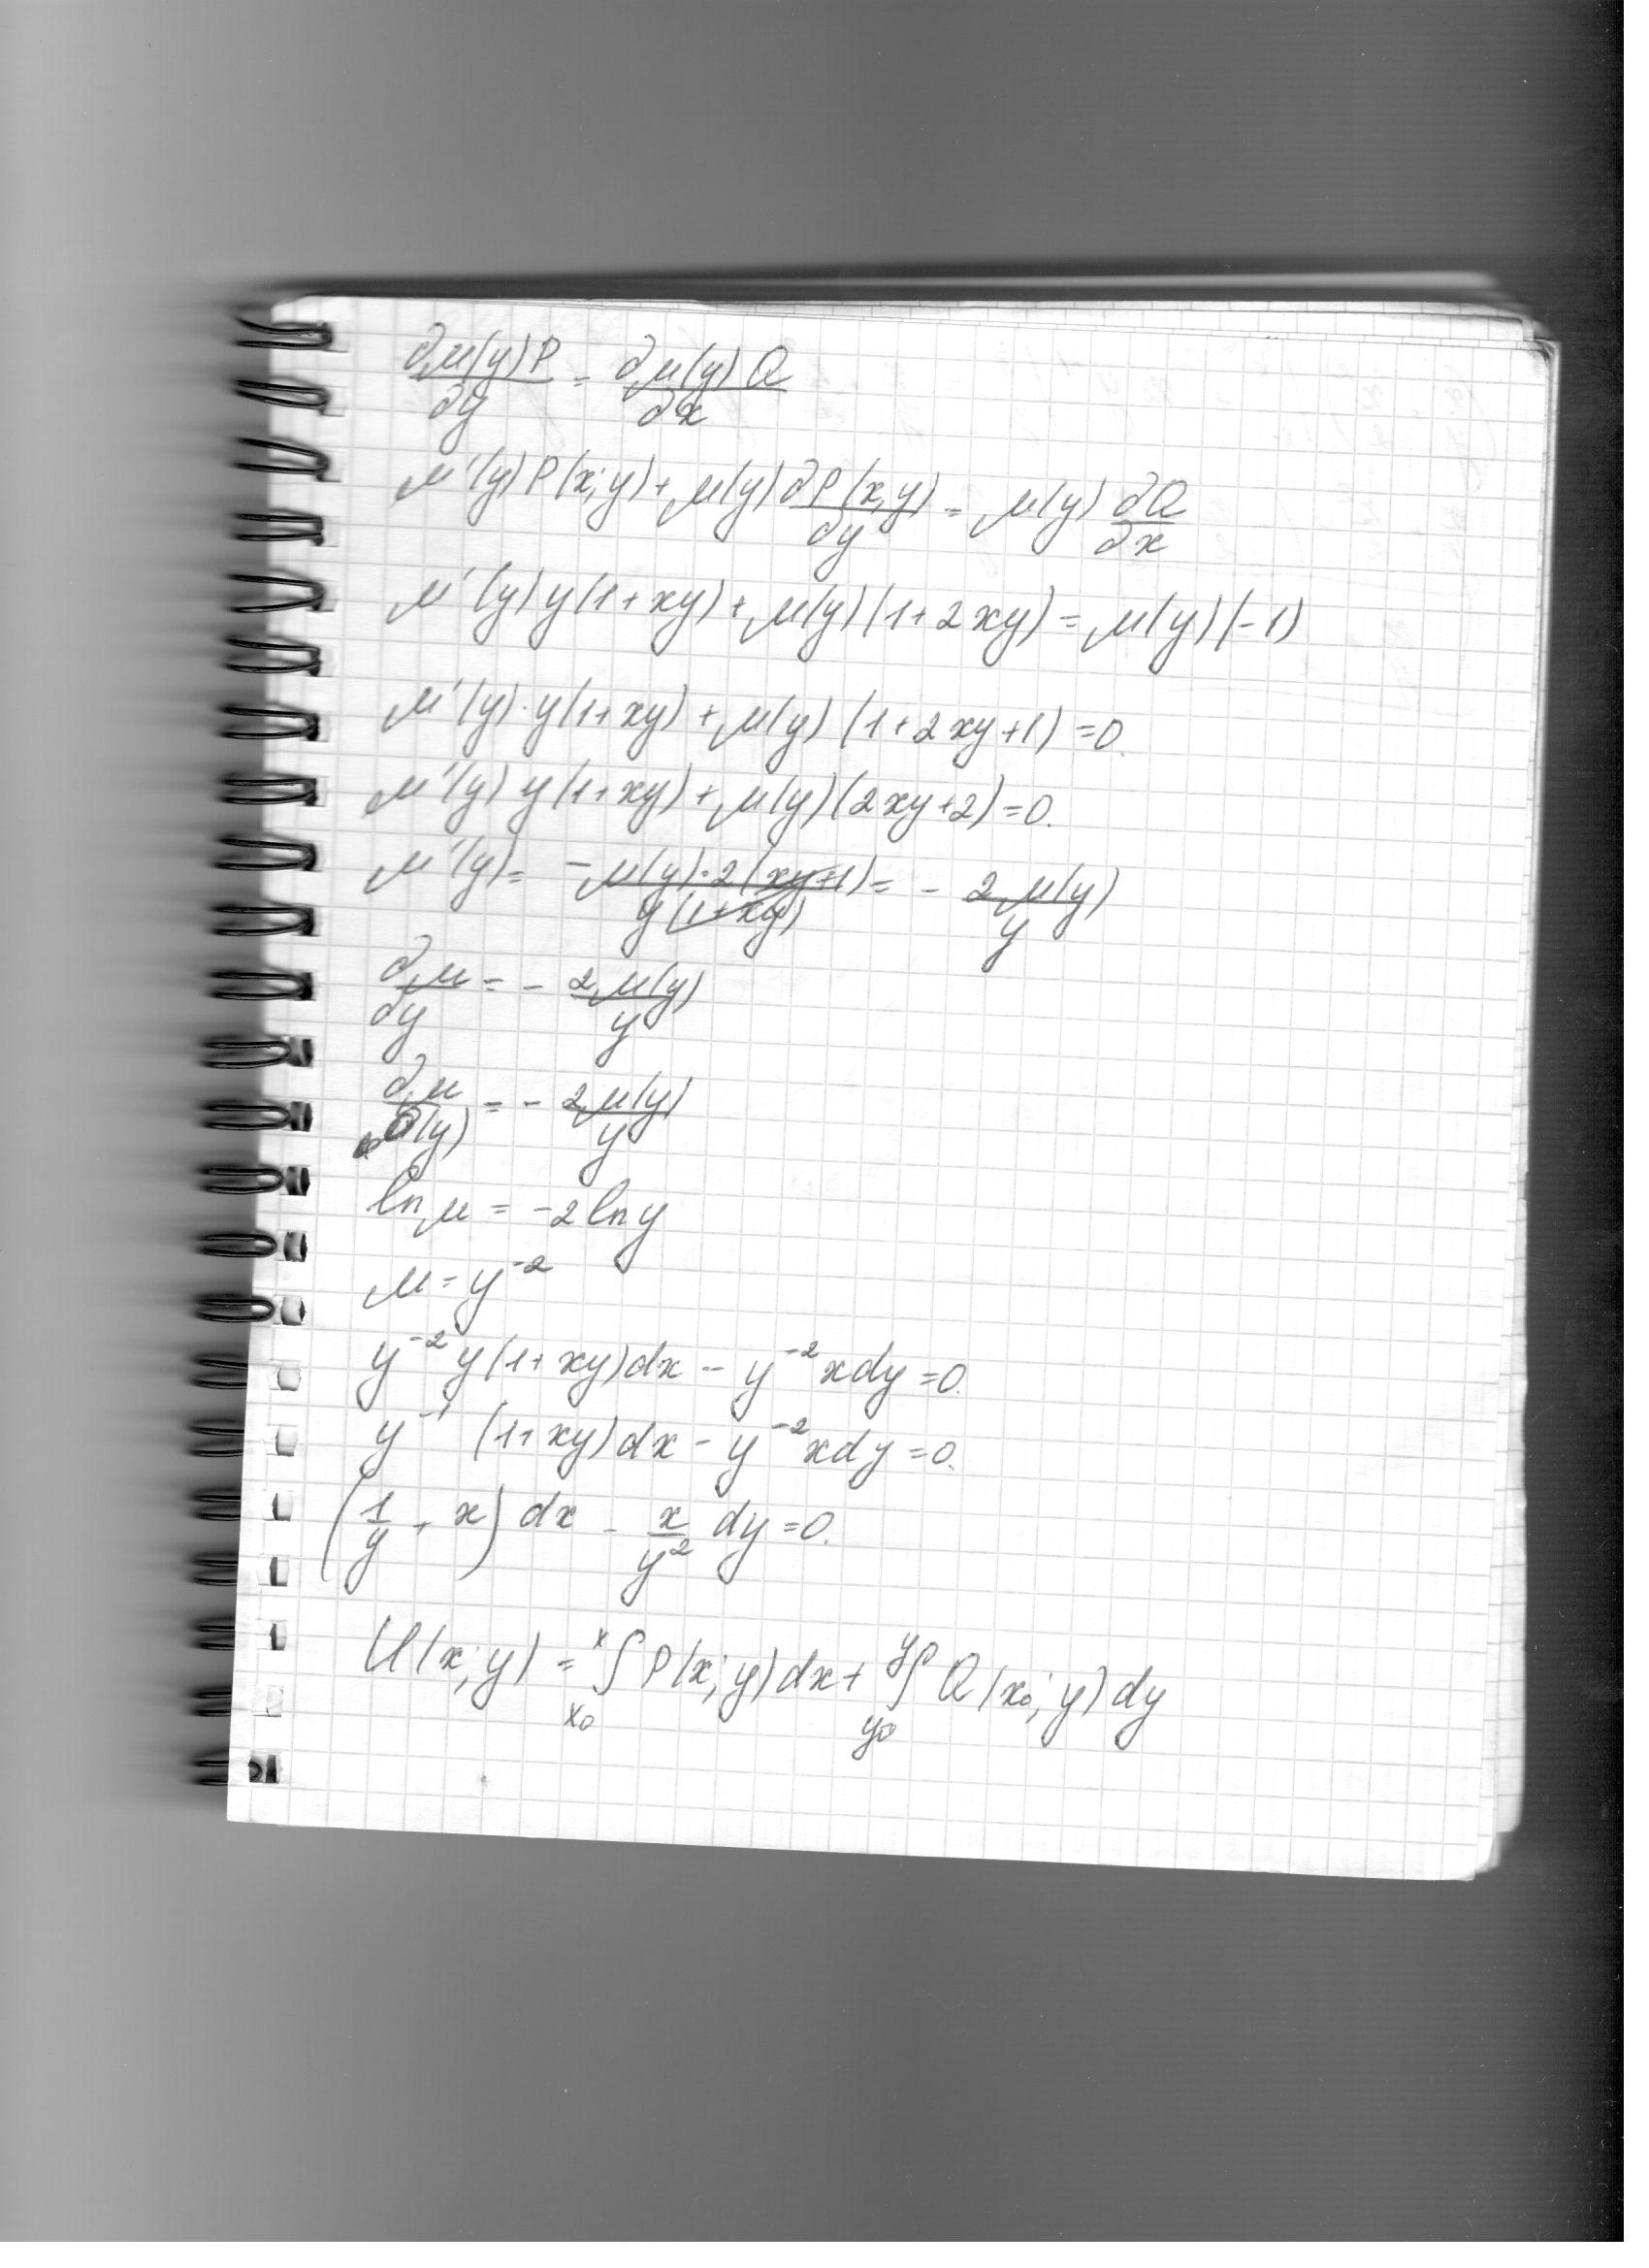 ∂μ(y)P/∂y = ∂μ(y)Q/∂x
μ'(y)P(x;y)+μ(y)∂P(x,y)/∂y = μ(y)∂Q/∂x
μ'(y)y(1+xy)+μ(y)(1+2xy)=μ(y)(-1)
μ'(y)·y(1+xy)+μ(y)(1+2xy+1)=0.
μ'(y)y(1+xy)+μ(y)(2xy+2)=0.
μ'(y)= -μ(y)·2(xy+1)/y(1+xy) = - 2μ(y)/y
∂μ/∂y = - 2μ(y)/y
∂μ/∂(y) = - 2μ(y)/y
ln μ = -2 ln y
μ = y⁻²
y⁻²y(1+xy)dx - y⁻²xdy=0.
y⁻¹(1+xy)dx - y⁻²xdy=0.
(1/y + x)dx - x/y² dy=0.
U(x;y) = ˣ∫ₓ₀ P(x;y)dx + ʸ∫y₀ Q(x₀;y)dy